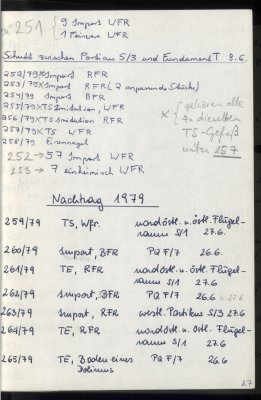 251 { 9 Import WFR
1 Feinen WFR
Schutt zwischen Porticus S/3 und Fundament T 8.6.
252/79 × Import RFR
253/79 × Import RFR (2 anpassende Stücke)
254/79 Import BFR
255/79 × TS Imitation, WFR
256/79 × TS Imitation RFR
257/79 × TS WFR
258/79 Eisennagel
× { gehören alle
zu dieselben
TS-Gefäß
unter 257
252 → 57 Import WFR
253 → 7 einheimisch WFR
Nachtrag 1979
259/79 TS, Wfr. nordöstl. u. östl. Flügel-
raum S/1 27.6
260/79 Import, BFR PQ F/7 26.6.
261/79 TE, RFR nordöstl. u. östl. Flügel-
raum S/1 27.6
262/79 Import, BFR PQ F/7 26.6 u. 27.6.
263/79 Import, RFR westl. Portikus S/3 27.6
264/79 TE, RFR nordöstl. u. östl. Flügel-
raum S/1 27.6
265/79 TE, Boden eines PQ F/7 26.6
Doliums